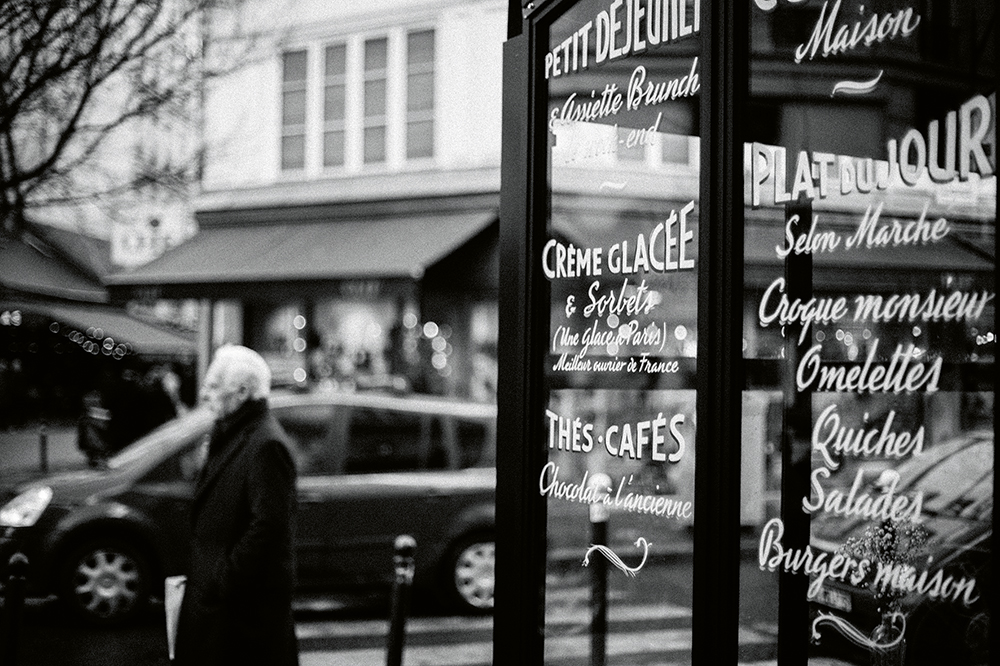 PETIT DÉJEUNER
& Assiette Brunch
Week-end
CRÈME GLACÉE
& Sorbets
(Une glace à Paris)
Meilleur ouvrier de France
THÉS · CAFÉS
Chocolat à l'ancienne
Maison
PLAT DU JOUR
Selon Marche
Croque monsieur
Omelettes
Quiches
Salades
Burgers maison